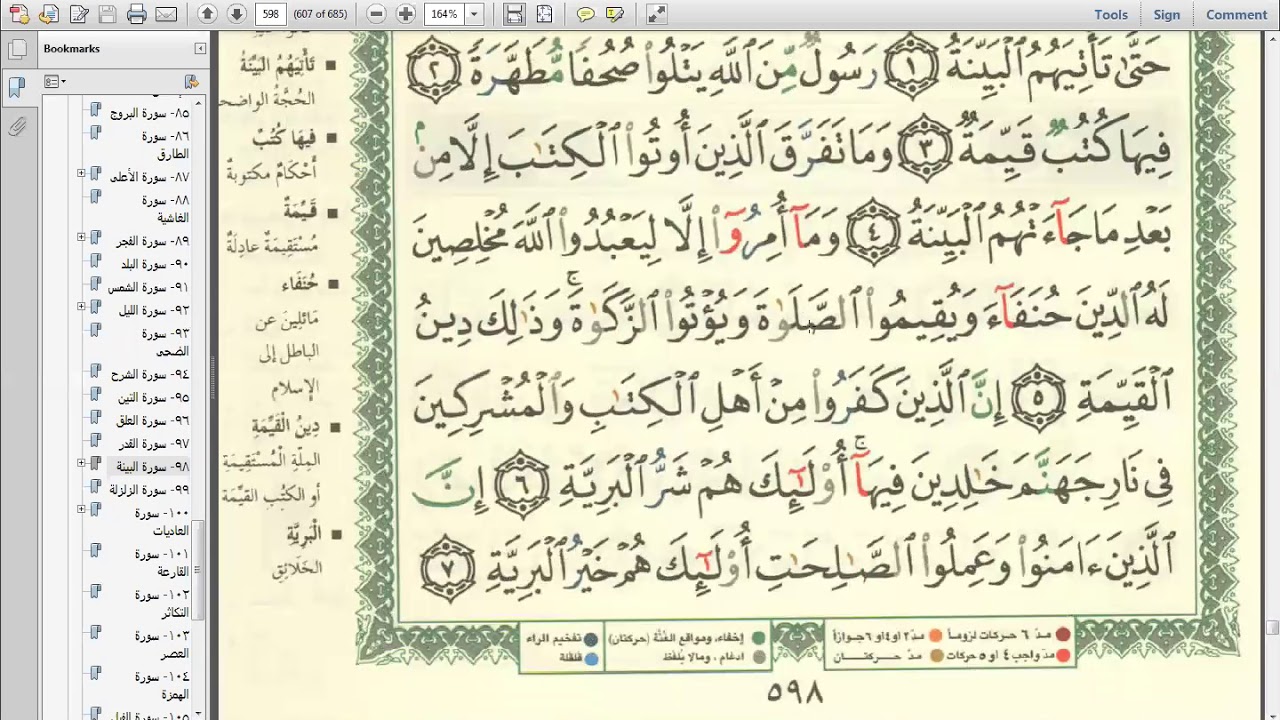 598
(607 of 685)
164%
Tools
Sign
Comment
Bookmarks
٨٥- سورة البروج
٨٦- سورة
الطارق
٨٧- سورة الأعلى
٨٨- سورة
الغاشية
٨٩- سورة الفجر
٩٠- سورة البلد
٩١- سورة الشمس
٩٢- سورة الليل
٩٣- سورة
الضحى
٩٤- سورة الشرح
٩٥- سورة التين
٩٦- سورة العلق
٩٧- سورة القدر
٩٨- سورة البينة
٩٩- سورة الزلزلة
١٠٠- سورة
العاديات
١٠١- سورة
القارعة
١٠٢- سورة
التكاثر
١٠٣- سورة
العصر
١٠٤- سورة
الهمزة
١٠٥- سورة الفيل
حَتَّىٰ تَأْتِيَهُمُ ٱلْبَيِّنَةُ ١ رَسُولٌ مِّنَ ٱللَّهِ يَتْلُوا۟ صُحُفًا مُّطَهَّرَةً ٢
فِيهَا كُتُبٌ قَيِّمَةٌ ٣ وَمَا تَفَرَّقَ ٱلَّذِينَ أُوتُوا۟ ٱلْكِتَٰبَ إِلَّا مِنۢ
بَعْدِ مَا جَآءَتْهُمُ ٱلْبَيِّنَةُ ٤ وَمَآ أُمِرُوٓا۟ إِلَّا لِيَعْبُدُوا۟ ٱللَّهَ مُخْلِصِينَ
لَهُ ٱلدِّينَ حُنَفَآءَ وَيُقِيمُوا۟ ٱلصَّلَوٰةَ وَيُؤْتُوا۟ ٱلزَّكَوٰةَ ۚ وَذَٰلِكَ دِينُ
ٱلْقَيِّمَةِ ٥ إِنَّ ٱلَّذِينَ كَفَرُوا۟ مِنْ أَهْلِ ٱلْكِتَٰبِ وَٱلْمُشْرِكِينَ
فِى نَارِ جَهَنَّمَ خَٰلِدِينَ فِيهَآ ۚ أُو۟لَٰٓئِكَ هُمْ شَرُّ ٱلْبَرِيَّةِ ٦ إِنَّ
ٱلَّذِينَ ءَامَنُوا۟ وَعَمِلُوا۟ ٱلصَّٰلِحَٰتِ أُو۟لَٰٓئِكَ هُمْ خَيْرُ ٱلْبَرِيَّةِ ٧
تَأْتِيَهُمُ الْبَيِّنَةُ
الحُجَّةُ الواضحة
فِيهَا كُتُبٌ
أَحْكَامٌ مكتوبةٌ
قَيِّمَةٌ
مُسْتَقِيمَةٌ عادِلَةٌ
حُنَفَاءَ
مَائِلِينَ عن
الباطل إلى
الإسلام
دِينُ الْقَيِّمَةِ
المِلَّةِ الْمُسْتَقِيمَةِ
أو الكتُبِ القَيِّمَةِ
الْبَرِيَّةِ
الخَلائِقِ
مدّ ٦ حركات لزوماً
مدّ ٢ او ٤ او ٦ جوازاً
إخفاء، ومواقع الغُنَّة (حركتان)
تفخيم الراء
مدّ واجب ٤ او ٥ حركات
مدّ حــركتــــان
ادغام ، ومالا يُلفَظ
قلقلة
٥٩٨